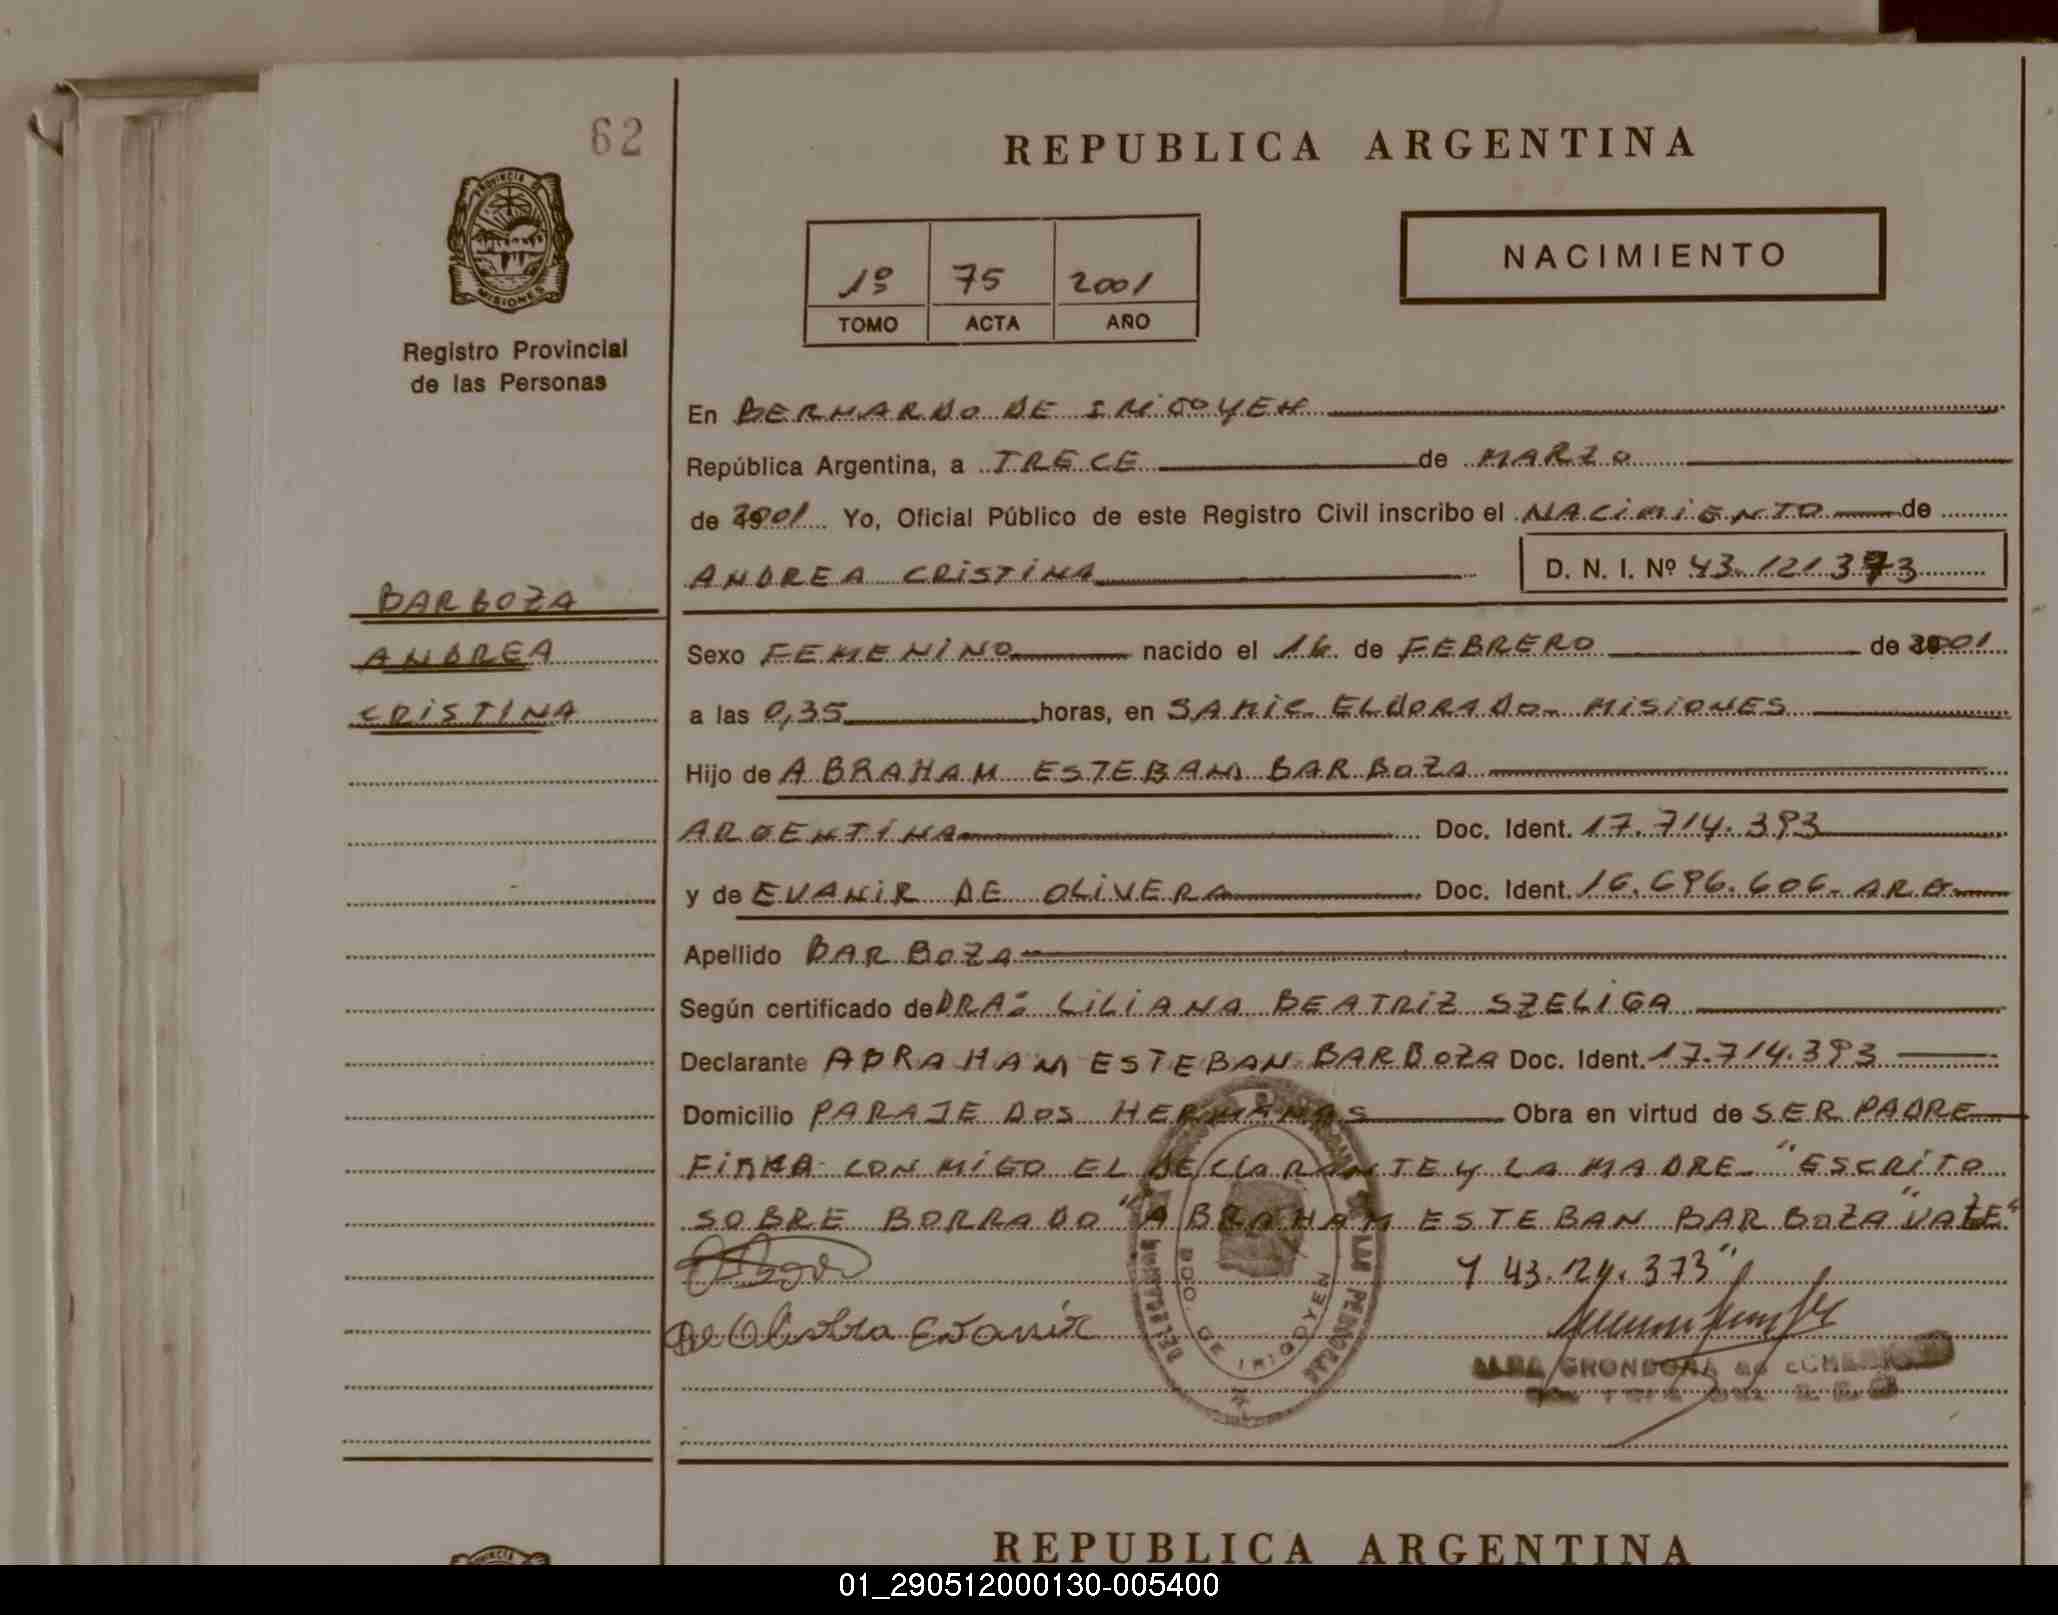 62
REPUBLICA ARGENTINA
PROVINCIA DE
MISIONES
Registro Provincial
de las Personas
NACIMIENTO
1º 75 2001
TOMO ACTA AÑO
En BERNARDO DE IRIGOYEN
República Argentina, a TRECE de MARZO
de 2001 Yo, Oficial Público de este Registro Civil inscribo el NACIMIENTO de
ANDREA CRISTINA D. N. I. Nº 43.121.373
BARBOZA
ANDREA
CRISTINA
Sexo FEMENINO nacido el 16 de FEBRERO de 2001
a las 0,35 horas, en SAMIC ELDORADO- MISIONES
Hijo de ABRAHAM ESTEBAN BARBOZA
ARGENTINA Doc. Ident. 17.714.393
y de EVANIR DE OLIVERA Doc. Ident. 16.696.606- ARG-
Apellido BARBOZA
Según certificado de DRA: LILIANA BEATRIZ SZELIGA
Declarante ABRAHAM ESTEBAN BARBOZA Doc. Ident. 17.714.393
Domicilio PARAJE DOS HERMANAS Obra en virtud de SER PADRE
FIRMA CONMIGO EL DECLARANTE Y LA MADRE- "ESCRITO
SOBRE BORRADO "ABRAHAM ESTEBAN BARBOZA "VALE"
Y 43.121.373"
De Olivera Evanir
BDO. DE IRIGOYEN
ALBA GRONDONA de
REPUBLICA ARGENTINA
01_290512000130-005400